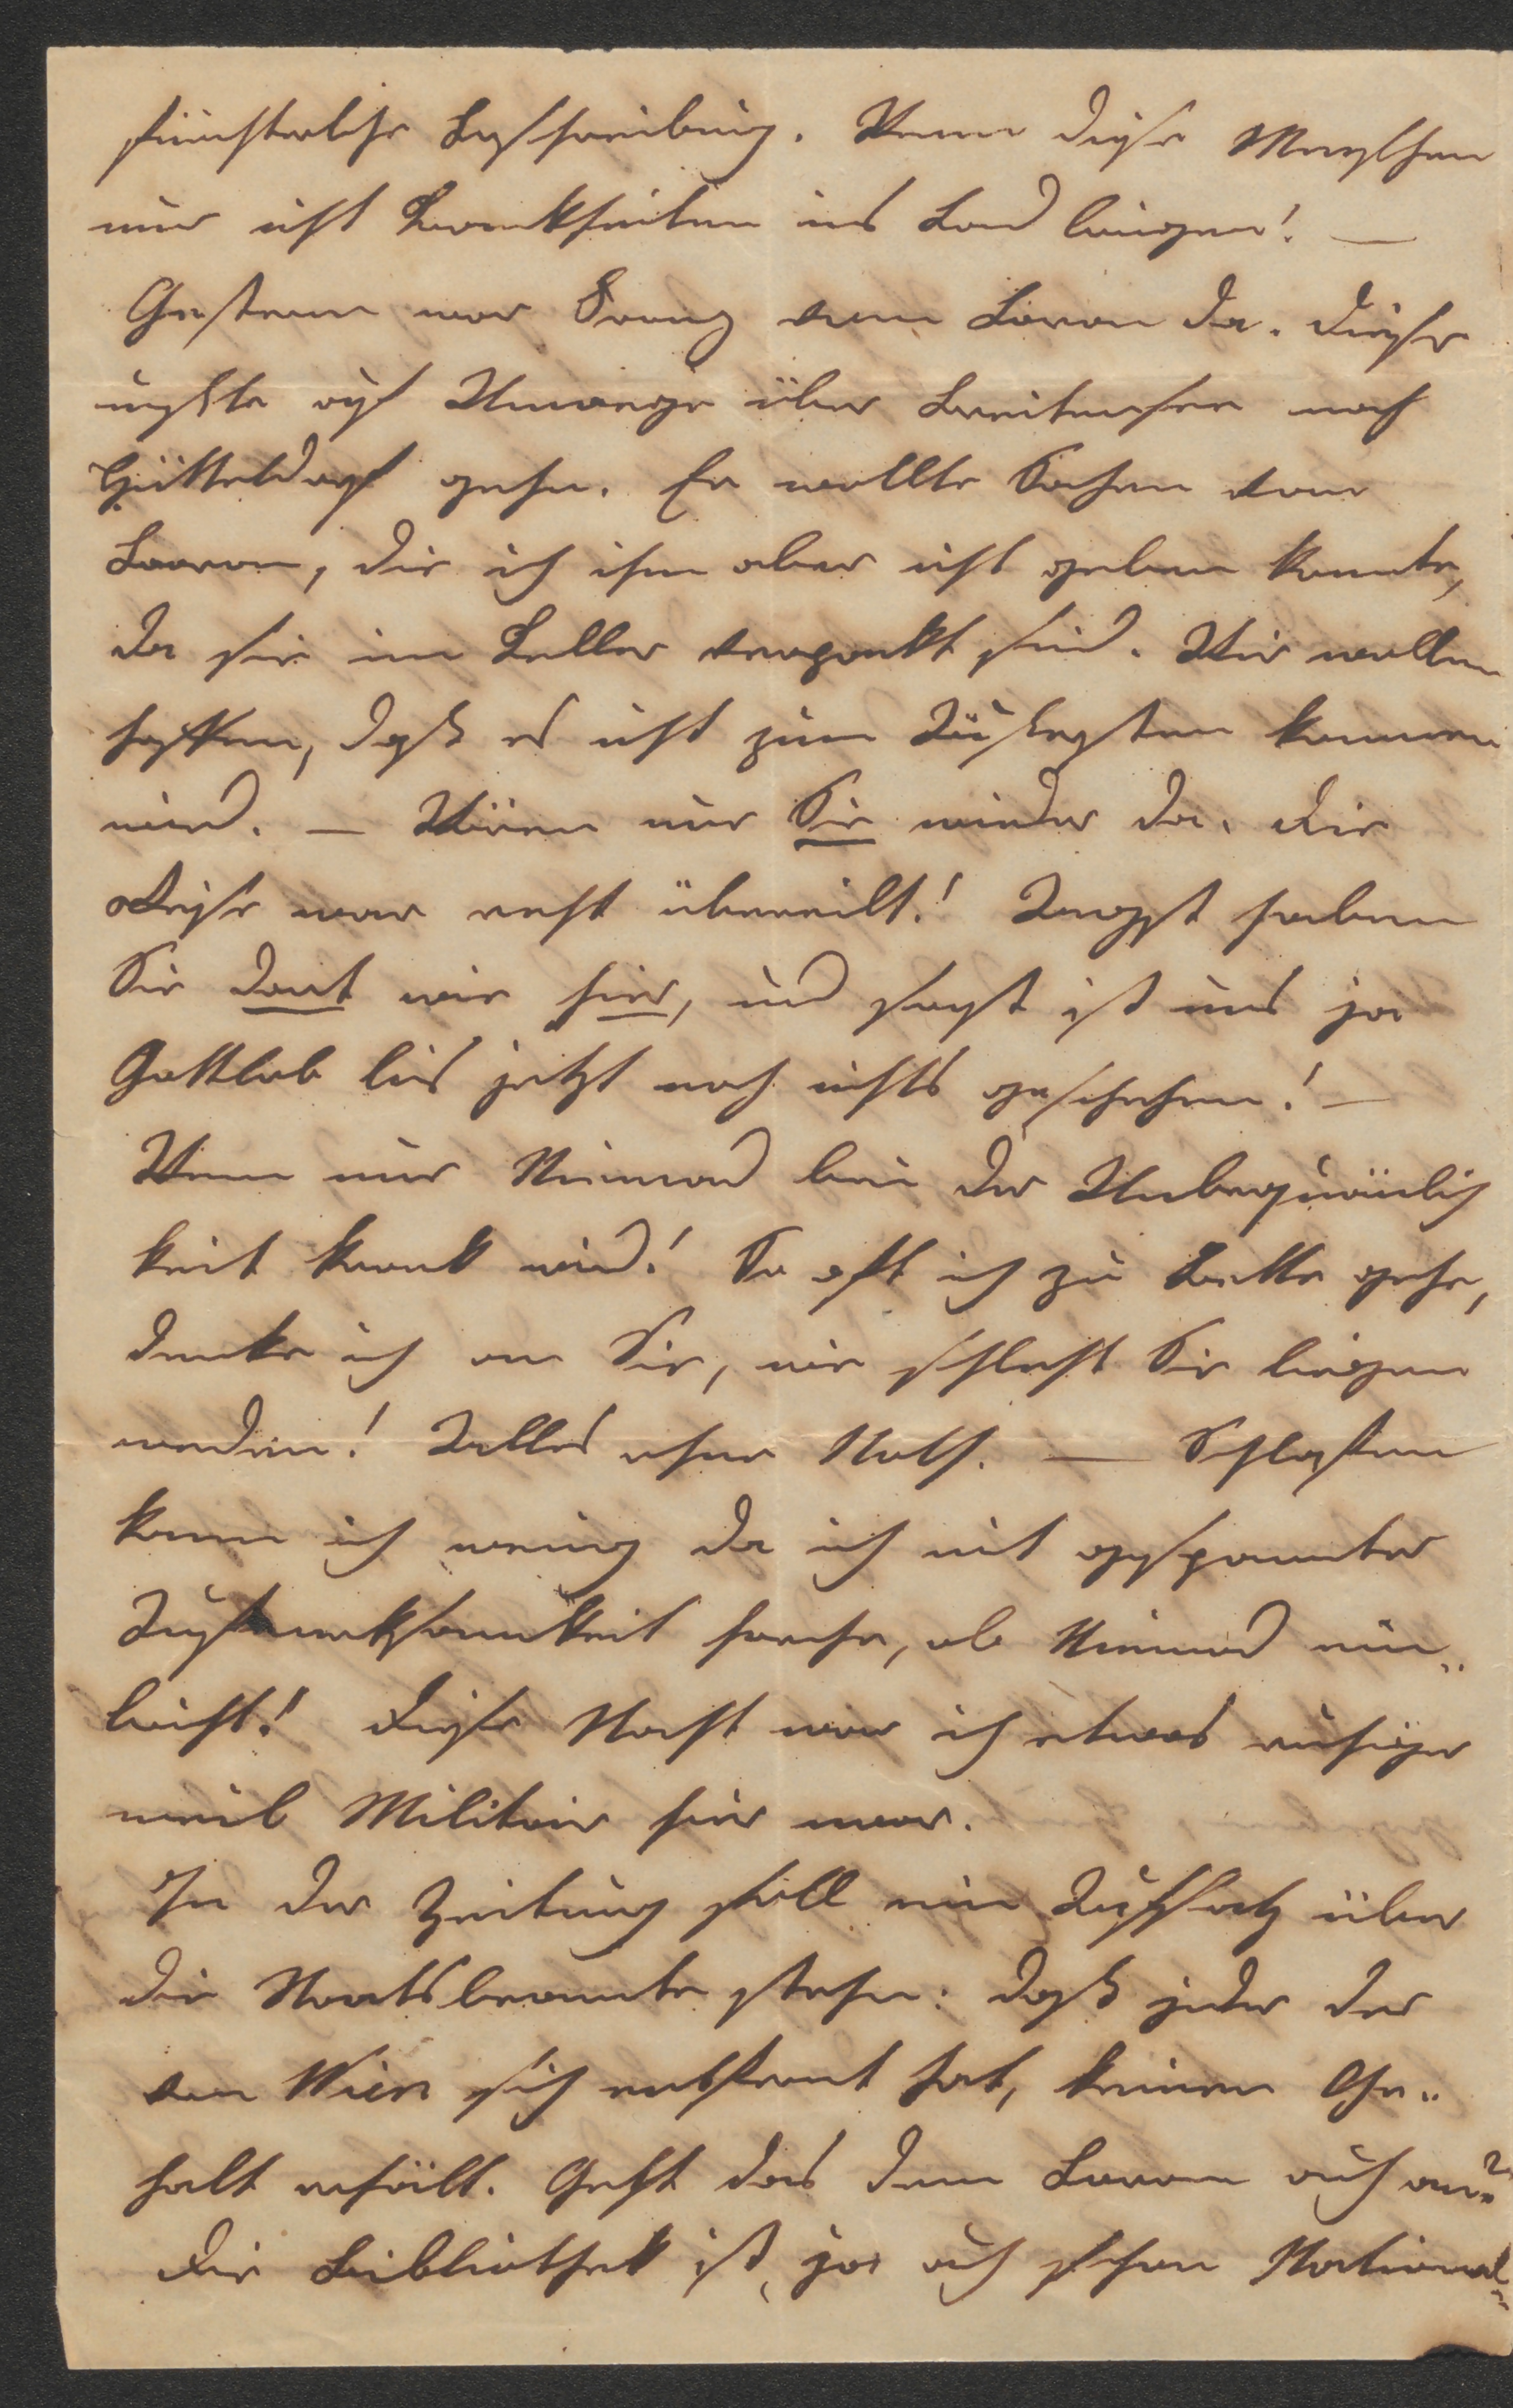 fürchterliche Beschreibung. Wenn diese Menschen
nur nicht Krankheiten ins Land bringen! —
Gestern war Franz vom Baron da. Dieser
mußte auf Umwege über Breitensee nach
Hütteldorf gehen. Er wollte Sachen vom
Baron, die ich ihm aber nicht geben konnte,
da sie im Keller verpackt sind. Wir wollen
hoffen, daß es nicht zum Äußersten kommen
wird. — Wären nur Sie wieder da. Die
Reise war recht übereilt! Angst haben
Sie dort wie hier, und sonst ist uns ja
Gottlob bis jetzt noch nichts geschehen! —
Wenn nur Niemand bei der Unbequämlich
keit krank wird! So oft ich zu Bette gehe,
denke ich an Sie, wie schlecht Sie liegen
werden! Alles ohne Noth. — Schlafen
kann ich wenig da ich mit gespannter
Aufmerksamkeit horche, ob Niemand ein„
bricht! Diese Nacht war ich etwas ruhiger
weil Militair hier war.
In der Zeitung soll ein Aufsatz über
die Staatsbeamte stehen: daß jeder der
von Wien sich entfernt hat, keinen Ge„
halt erhält. Geht das dem Baron auch an?
Die Bibliothek ist ja auch schon National„